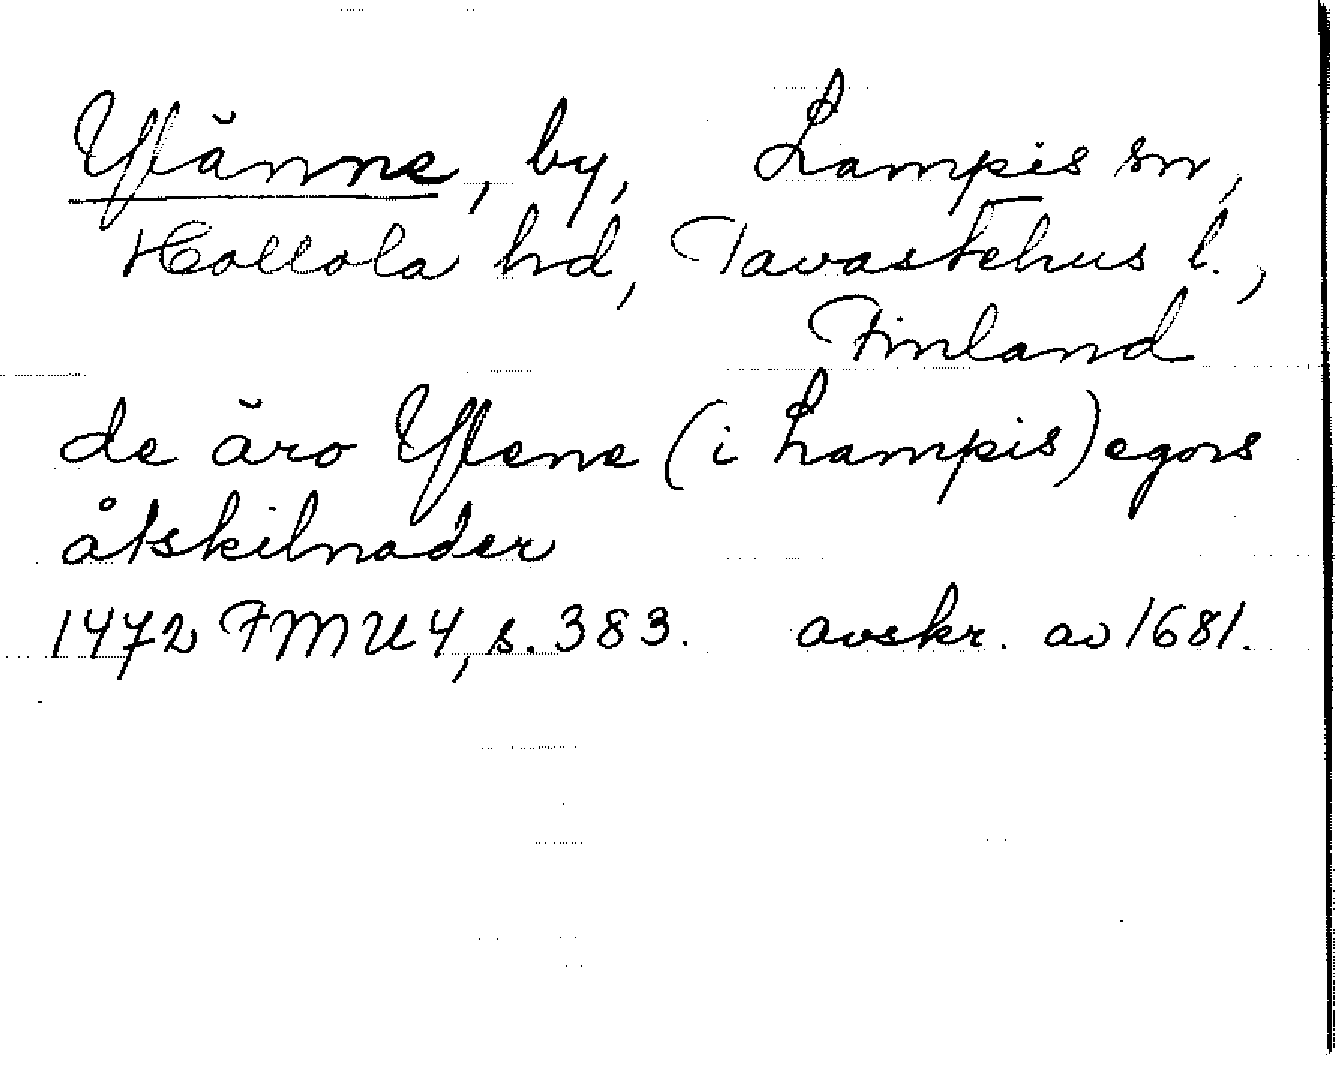 Ylänne, by, Lampis sn,
Hollola hd, Tavastehus l.,
Finland
de äro Ylene (i Lampis) egors
åtskilnader
1472 FMU 4, s. 383. avskr. av 1681.